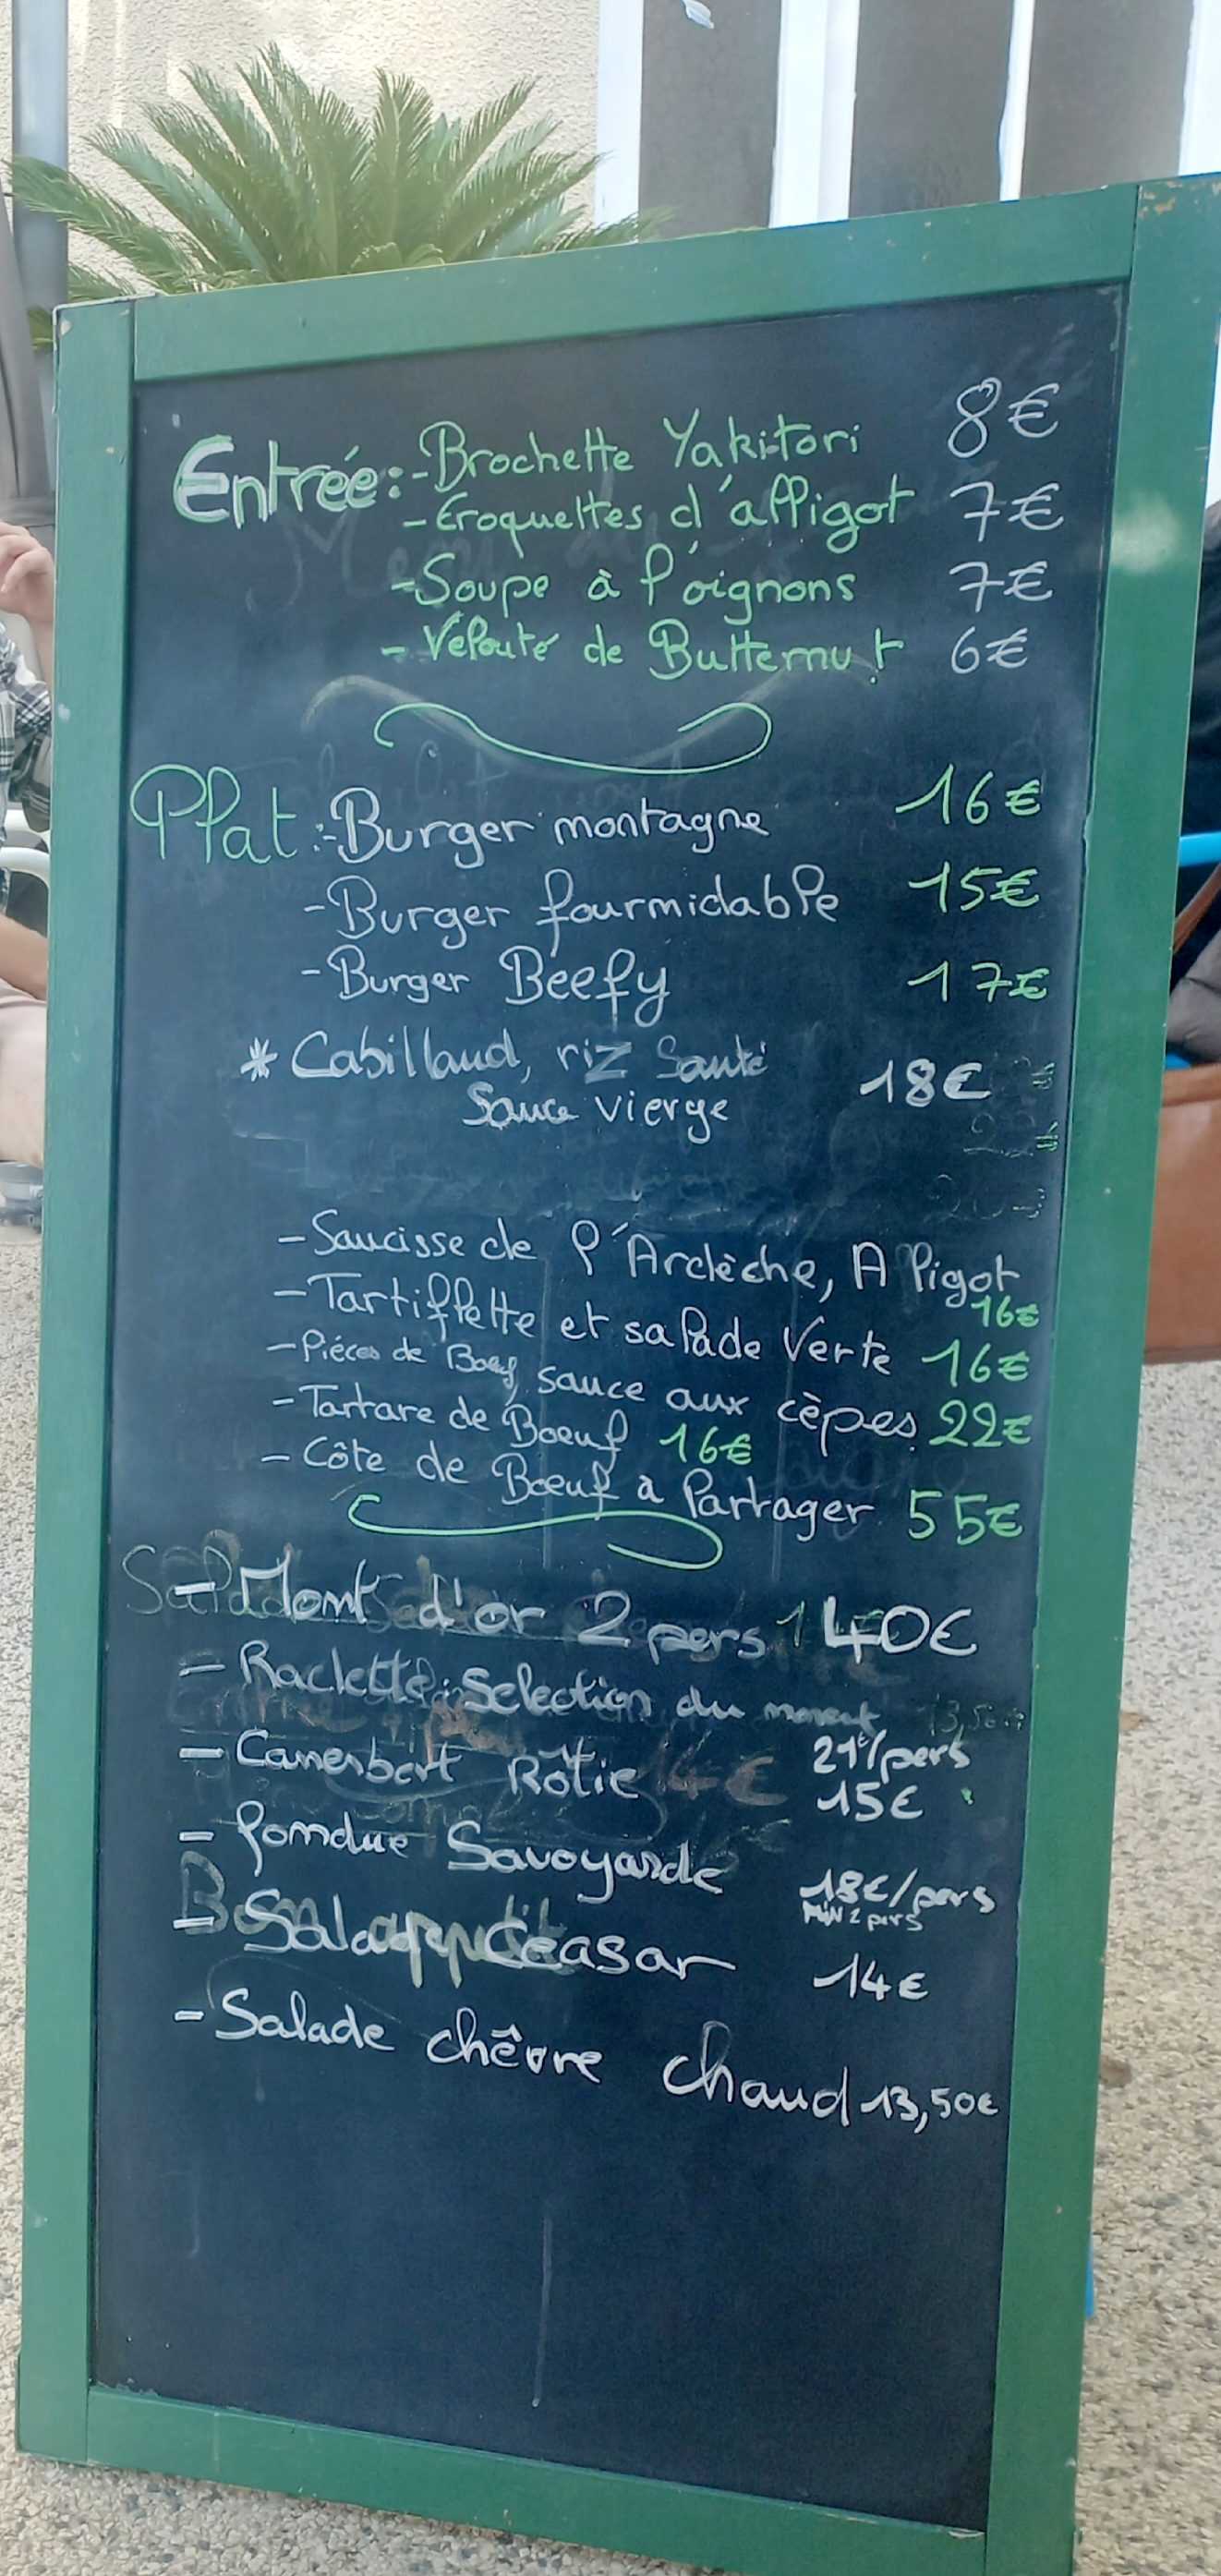 Entrée: - Brochette Yakitori 8€
- Croquettes d'alligot 7€
- Soupe à l'oignons 7€
- Velouté de Butternut 6€
Plat: - Burger montagne 16€
- Burger fourmidable 15€
- Burger Beefy 17€
* Cabillaud, riz Sauté
Sauce vierge 18€
- Saucisse de l'Ardèche, Aligot
16€
- Tartiflette et salade Verte 16€
- Piéces de Boeuf, sauce aux cèpes 22€
- Tartare de Boeuf 16€
- Côte de Boeuf à Partager 55€
- Mont d'or 2 pers 40€
- Raclette: Selection du moment
21€/pers
- Camenbert Rôtie 15€
- fondue Savoyarde 18€/pers
MiN 2 pers
- Salade Ceasar 14€
- Salade chêvre chaud 13,50€